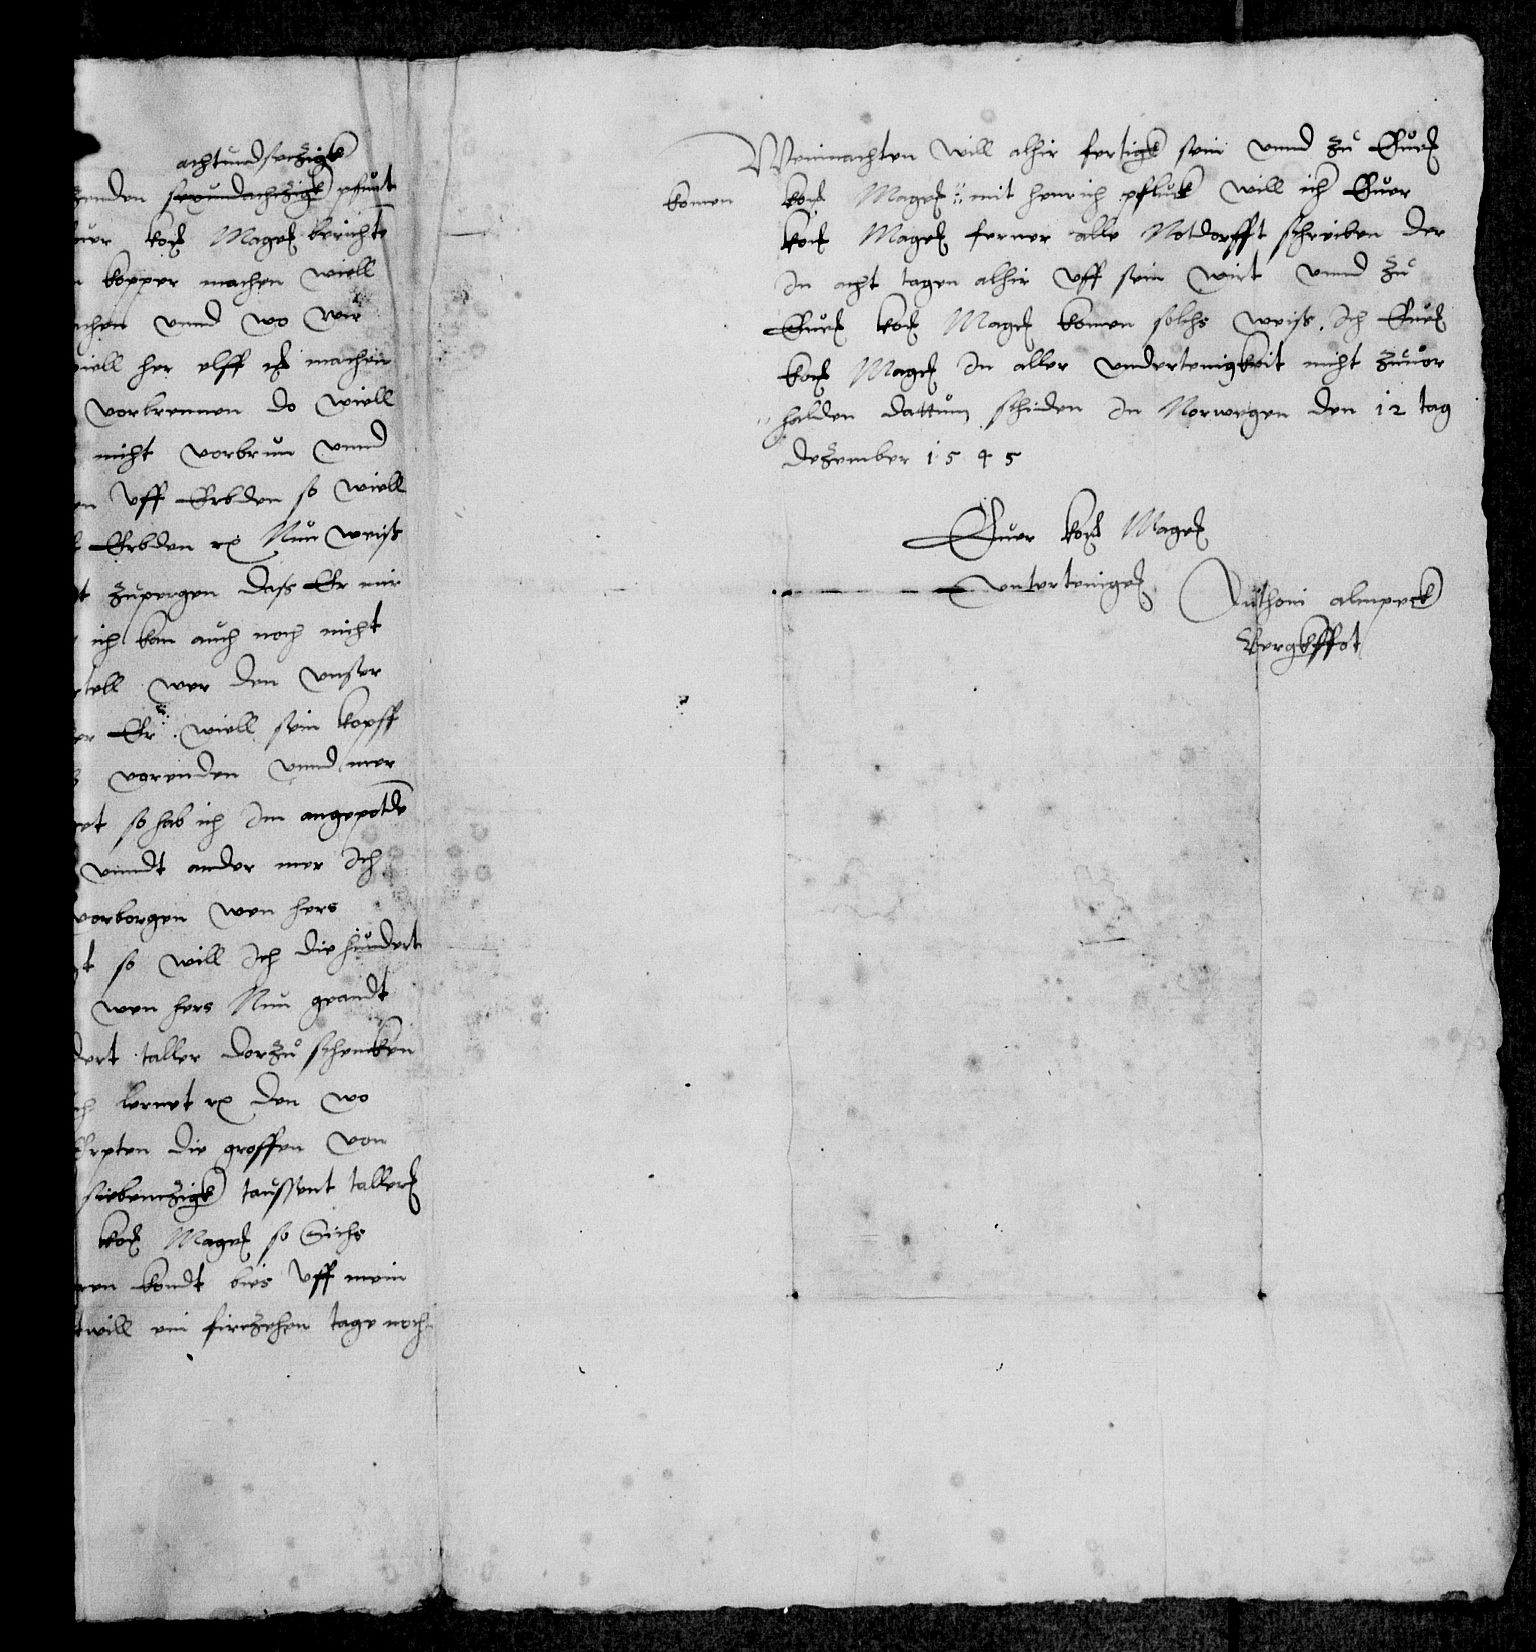 achtundsechzigk
enden sexundachtzigk pfunt
uer kon Mages berichte
kopper machen wiell
chen unnd wo wir
wiell her elff machen
vorbrennen do wiell
nicht vorbrun unnd
en uff Erbden so wiell
Erbden Nun weiss
t zupergen dass Er mir
ich kan auch noch nicht
rtell wer den unser
er Er wiell sein kopff
vorenden unnd mer
et so hab ich Im angepotde
unndt ander mer Ich
vorborgen wen hers
t so will Ich die hundert
wen hers Nun geandt
dert taller dorzu schencken
ch lernet den wo
die grossen von
siebenzigk taussent taller
kon Mages so Sichs
ren kondt bies uff mein
will ein firzehen tage noch
Weinnachten will alhir fertigk sein unnd zu Euer
komen kon Mages mit henrich pfluck will ich Euer
kon Mages ferner alle Notdorfft schreiben der
In acht tagen alhir uff sein wirt unnd zu
Euer kon Mages komen solchs weiss Ich Euer
kon Mages In aller undertenigkeit nicht zuuor
halden dattum schiden In Norwegen den 12 tag
dezember 1545
Euer kon Mages
unterteniger Anthoni almpeck
Bergkffot